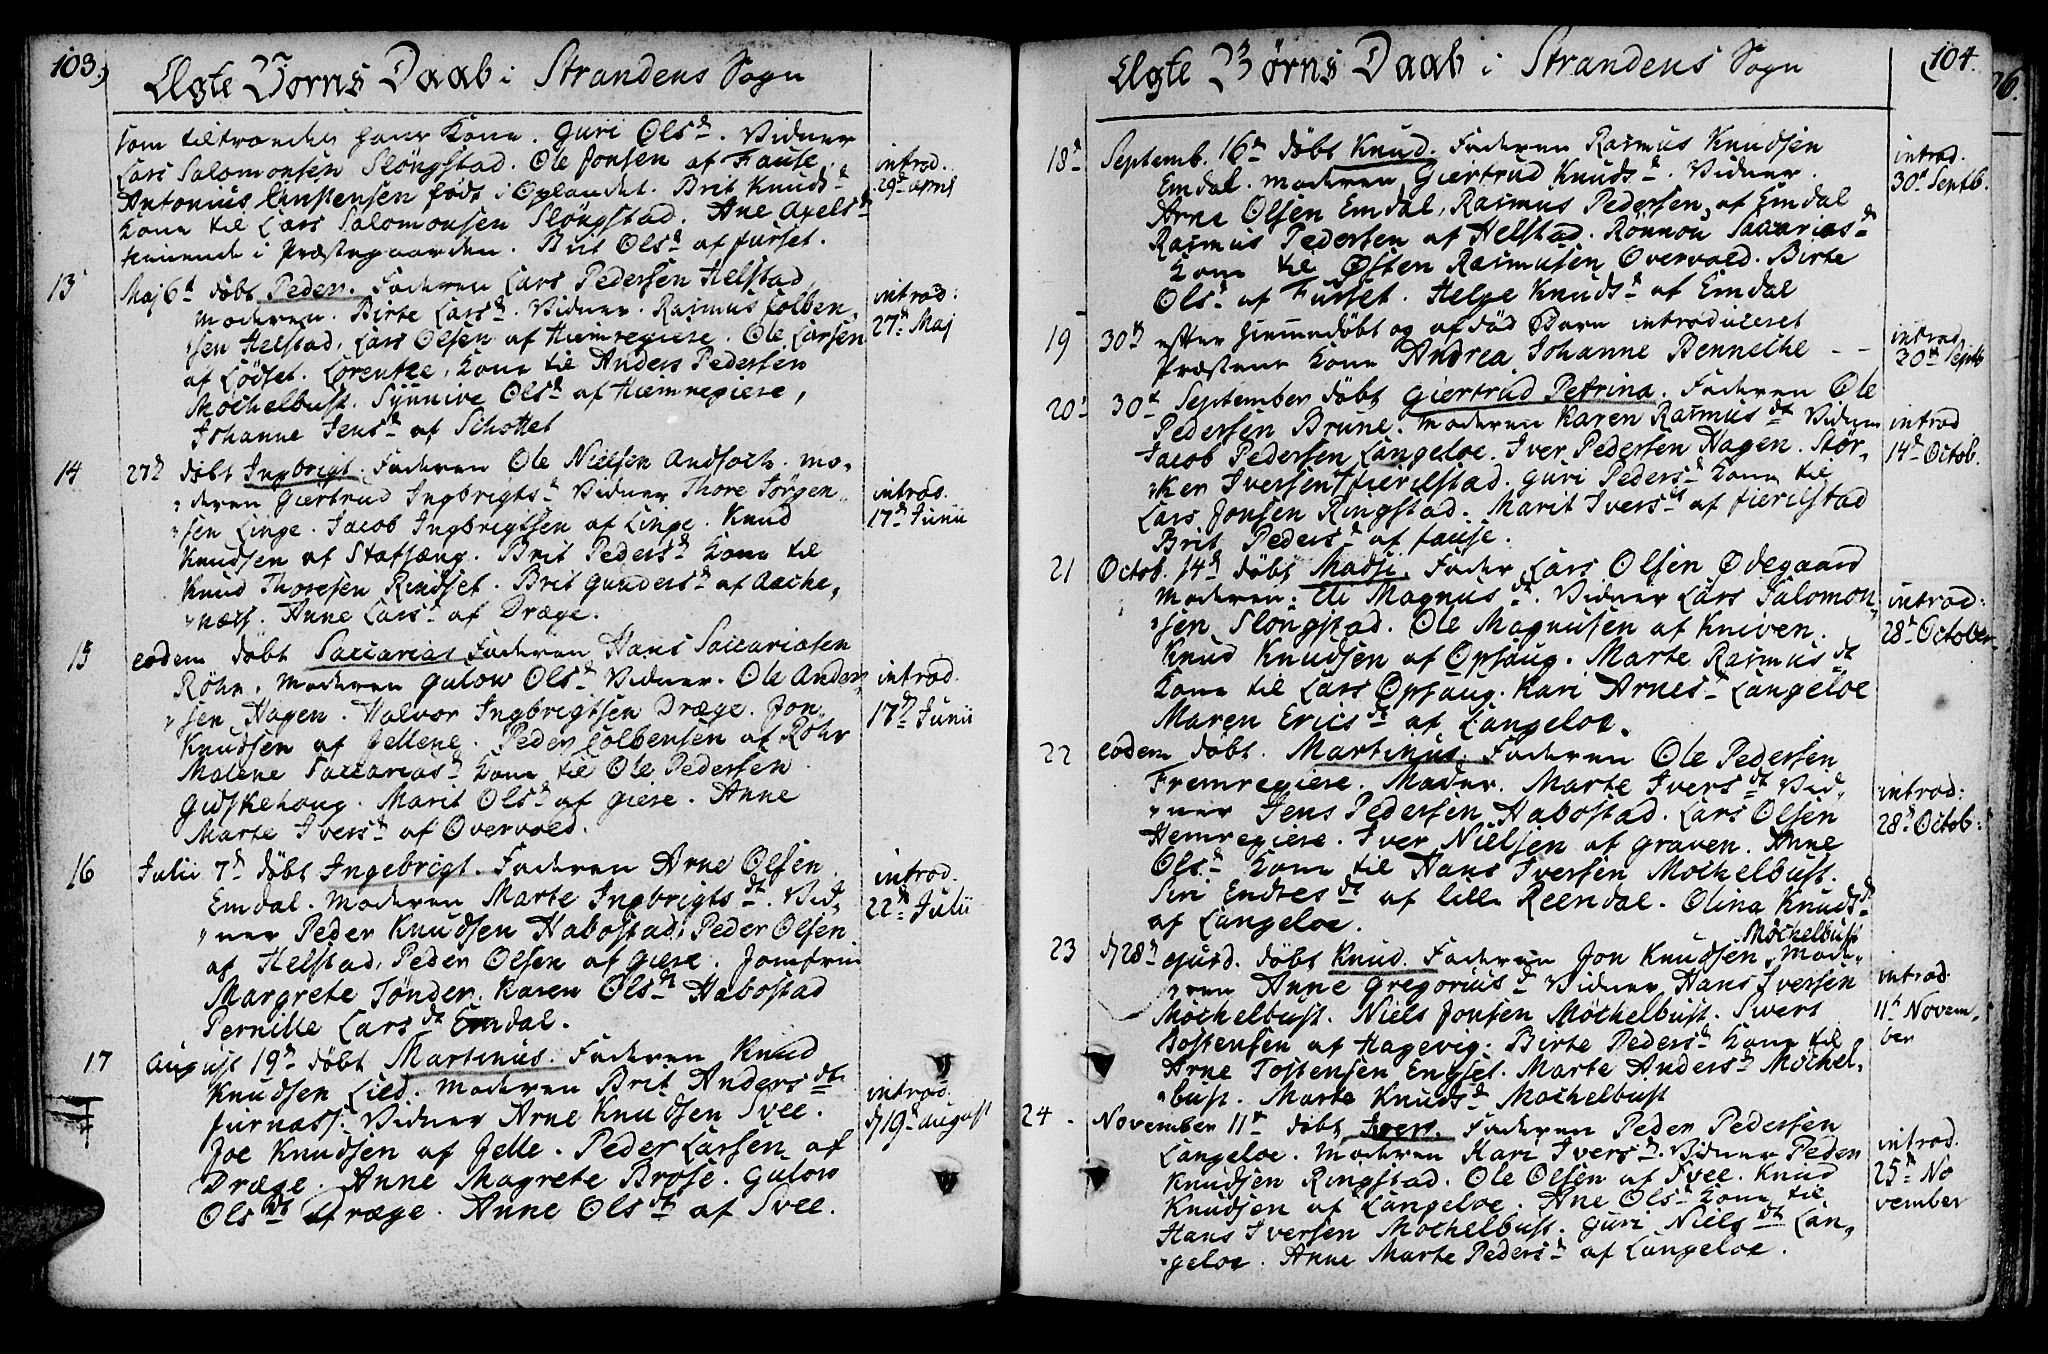 103.)
Ægte Børns Daab i Strandens Sogn
som tiltraadde hans Kone. Guri Olsdt. Vidner
Lars Salomonsen Slöngstad. Ole Jonsen af Fause.
Antonius Christensen født i Oplandet. Brit Knudsdt
Kone til Lars Salomonsen Slöngstad. Ane Axelsdt
tienende i Præstegaarden. Brit Olsdt af furset.
introd.
29de april
13
Maj 6te döbt Peder. Faderen Lars Pedersen Helstad
Moderen. Birte Larsdt. Vidner. Rasmus Colben-
sen Helstad, Lars Olsen af Hiemregiere. Ole Larsen
af Lödset. Lorentze, Kone til Anders Pedersen
Mochelbust. Synnive Olsdt af Hiemregiere,
Johanne Jensdt af Schottet
introd:
27de Maj
14
27de döbt Ingbrigt. Faderen Ole Nielsen Andsoch. mo-
deren Giertrud Ingbrigtsdt Vidner Thore Jörgen-
sen Linge. Jacob Ingbrigtsen af Linge. Knud
Knudsen af Stafsæng. Brit Pedersdt Kone til
Knud Thoresen Rindset. Brit Gundersdt af Aache-
næs. Anne Larsdt af Dræge.
introd.
17de Junii
15
eodem döbt Saccarias Faderen Hans Saccariasen
Röhr. Moderen Gulow Olsdt Vidner. Ole Ander-
sen Hagen. Halvor Ingbrigtsen Dræge. Jon
Knudsen af Jellene. Peder Colbensen af Röhr
Malene Saccariasdt Kone til Ole Pedersen
Gidskehaug. Marit Olsdt af Giere. Anne
Marte Iversdt af Overvold.
introd.
17de Junii
16
Julii 7de döbt Ingebrigt. Faderen Arne Olsen
Emdal. Moderen Marte Ingbrigtsdt. Vid-
ner Peder Knudsen Habostad, Peder Olsen
af Helstad, Peder Olsen af Giere. Jomfru
Margrete Tönder. Karen Olsdt Habostad
Pernille Larsdt Emdal.
introd.
22de Julii
17
August 19de döbt Martinus. Faderen Knud
Knudsen Lied. Moderen Brit Andersdt
furnæss. Vidner Arne Knudsen Svee.
Joe Knudsen af Jelle. Peder Larsen af
Dræge. Anne Magrete Brose. Gulow
Olsdt Dræge. Anne Olsdt af Svee.
introd.
d 19de august
Ægte Børns Daab i Strandens Sogn
104.
18de
Septemb. 16de döbt Knud. Faderen Rasmus Knudsen
Emdal. Moderen Giertrud Knudsdt. Vidner.
Arne Olsen Emdal, Rasmus Pedersen af Emdal
Rasmus Pedersen af Helstad. Rönnou Saccariasdt
Kone til Östen Rasmusen Overvold. Birte
Olsdt af Furset. Helge Knudsdt af Emdal
introd.
30te Septb.
19
30te efter hiemmedöbt og af död Barn introduceret
Præstens Kone Andrea Johanne Bennethe - -
introd
30te Septb
20
30te September döbt Giertrud Petrina. Faderen Ole
Pedersen Brune. Moderen Karen Rasmusdt Vidner
Jacob Pedersen Langeloe. Iver Pedersen Hagen. Stör-
ker Iversen fierilstad. Guri Pedersdt Kone til
Lars Jonsen Ringstad. Marit Iversdt af fierilstad
Brit Pedersdt af fause.
introd
14de Octob.
21
Octob. 14de döbt Madsi. Fader Lars Olsen Ödegaard
Moderen. Eli Magnusdt. Vidner Lars Salomon-
sen Slöngstad. Ole Magnusen af Kniven.
Knud Knudsen af Opsaug. Marte Rasmusdt
Kone til Lars Opsaug. Kari Arnesdt Langeloe
Maren Ericsdt af Langeloe.
introd:
28de October
22
eodem döbt. Martinus. Faderen Ole Pedersen
Fremregiere. Moder. Marte Iversdt Vid-
ner Jens Pedersen Habostad. Lars Olsen
Hemregiere. Iver Nielsen af graven. Anne
Olsdt Kone til Hans Iversen Mochelbust.
Siri Endresdt af lille Reendal. Olina Knudsdt
af Langeloe.
introd:
28de Octob:
23
d 28de ejusd. döbt Knud. Faderen Jon Knudsen Möchelbust Mode-
ren Anne Gregoriusdt Vidner Hans Iversen
Möchelbust. Niels Jonsen Möchelbust. Siver
Tostensen af Hagevig. Birte Pedersdt Kone til
Arne Tostensen Engset. Marte Andersdt Möchel-
bust. Marte Knudsdt Möchelbust
introd
11te Novem-
ber
24
November 11te döbt Iver. Faderen Peder Pedersen
Langeloe. Moderen Kari Iversdt. Vidner Peder
Knudsen Ringstad. Ole Olsen af Svee. Knud
Knudsen af Langeloe. Ane Olsdt Kone til
Hans Iversen Möchelbust. Guri Nielsdt Lan-
geloe. Anne Marte Pedersdt af Langeloe.
introd.
25de No
vember